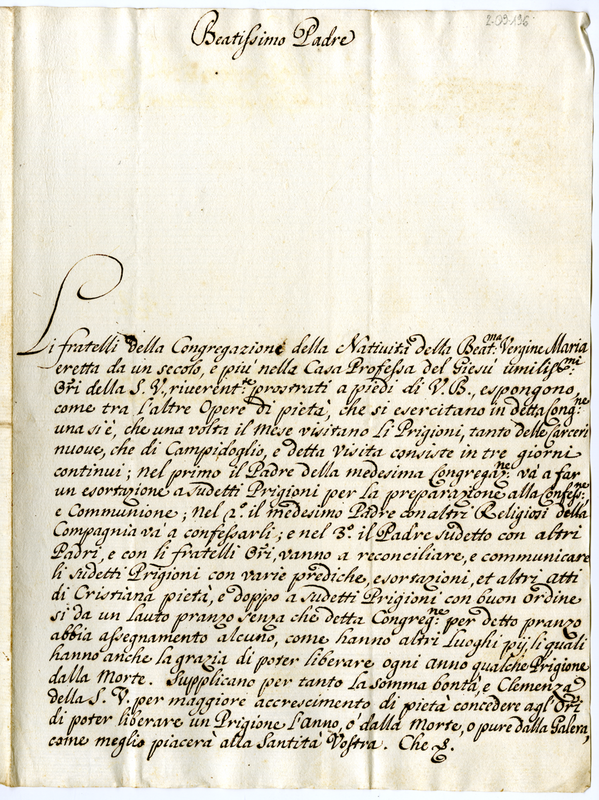 2-09-196
Beatissimo Padre
Li fratelli della Congregazione della Natività della Beat.ma Vergine Maria
eretta da un secolo, e più nella Casa Professa del Giesù umiliss.mi
Ori della S. V., riverent.te prostrati a piedi di V. B., espongono,
come tra l'altre Opere di pietà, che si esercitano in detta Cong.ne
una si è, che una volta il mese visitano li Prigioni, tanto delle Carceri
nuove, che di Campidoglio, e detta visita consiste in tre giorni
continui; nel primo il Padre della medesima Congregaz.ne và a far
un esortazione a sudetti Prigioni per la preparazione alla Confess.ne
e Communione; nel 2.o il medesimo Padre con altri Religiosi della
Compagnia và a confessarli; e nel 3.o il Padre sudetto con altri
Padri, e con li fratelli Ori, vanno a reconciliare, e communicare
li sudetti Prigioni con varie prediche, esortazioni, et altri atti
di Cristiana pietà, e doppo a sudetti Prigioni con buon ordine
si da un lauto pranzo senza che detta Congreg.ne per detto pranzo
abbia assegnamento alcuno, come hanno altri Luoghi pij, li quali
hanno anche la grazia di poter liberare ogni anno qualche Prigione
dalla Morte. Supplicano per tanto la somma bontà, e Clemenza
della S. V. per maggiore accrescimento di pietà concedere agl'Ori
di poter liberare un Prigione l'anno, ò dalla Morte, o pure dalla Galera,
come meglio piacerà alla Santità Vostra. Che &.